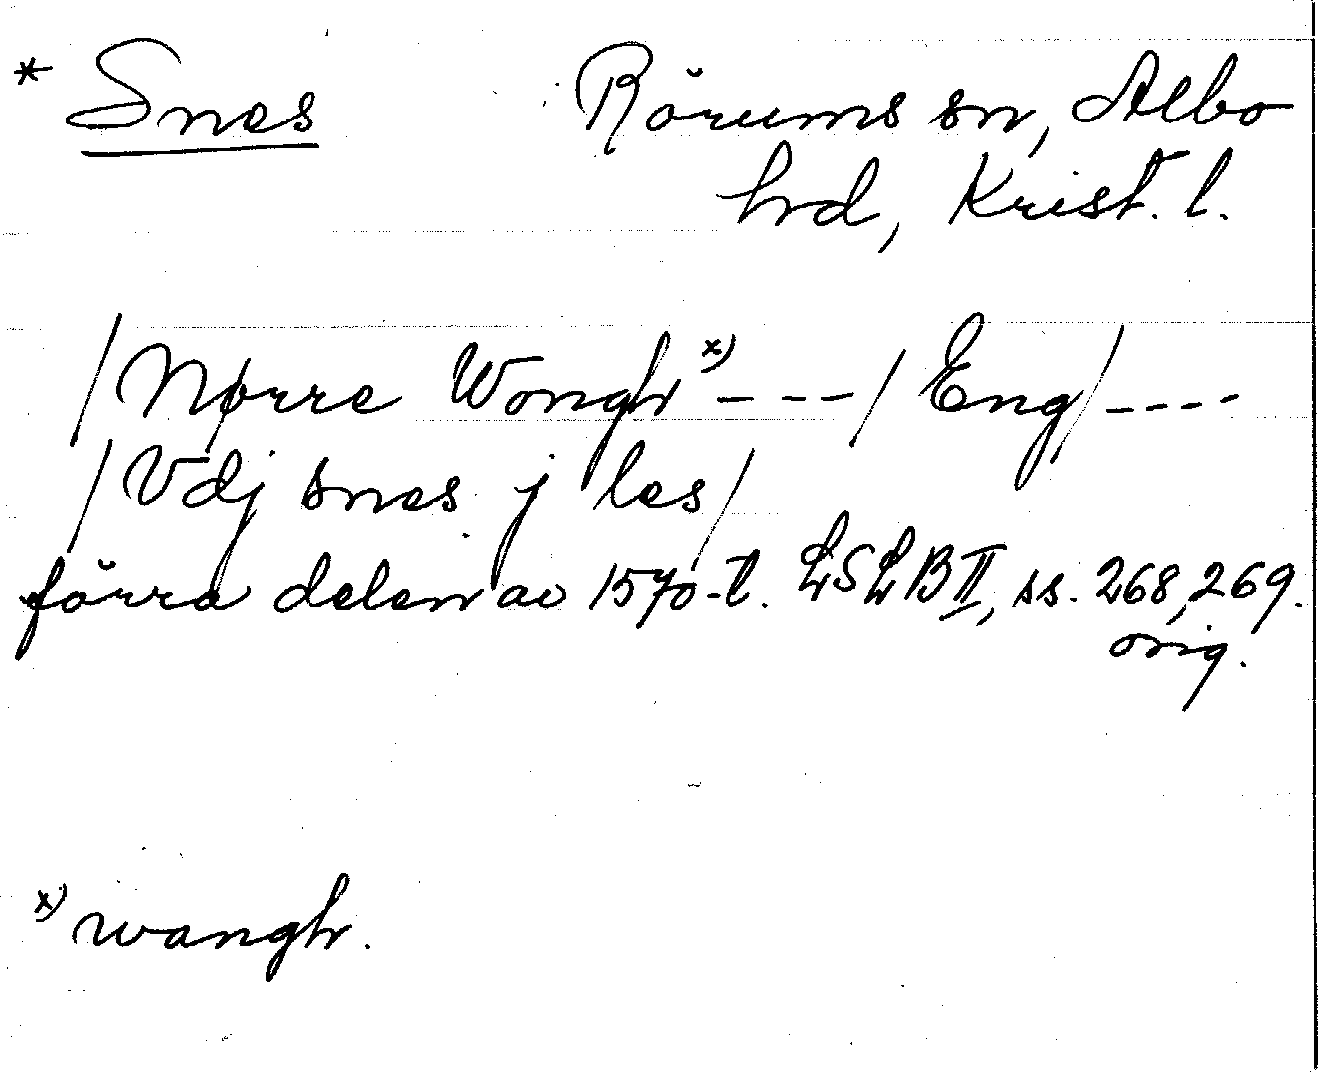 * Snes Rörums sn, Albo
hrd, Krist. l.
/Nørre Wongh x) ---/ Eng/ ----
/Vdj snes j les/
förra delen av 1570-t. LSLB II, ss. 268, 269.
orig.
x) wangh.